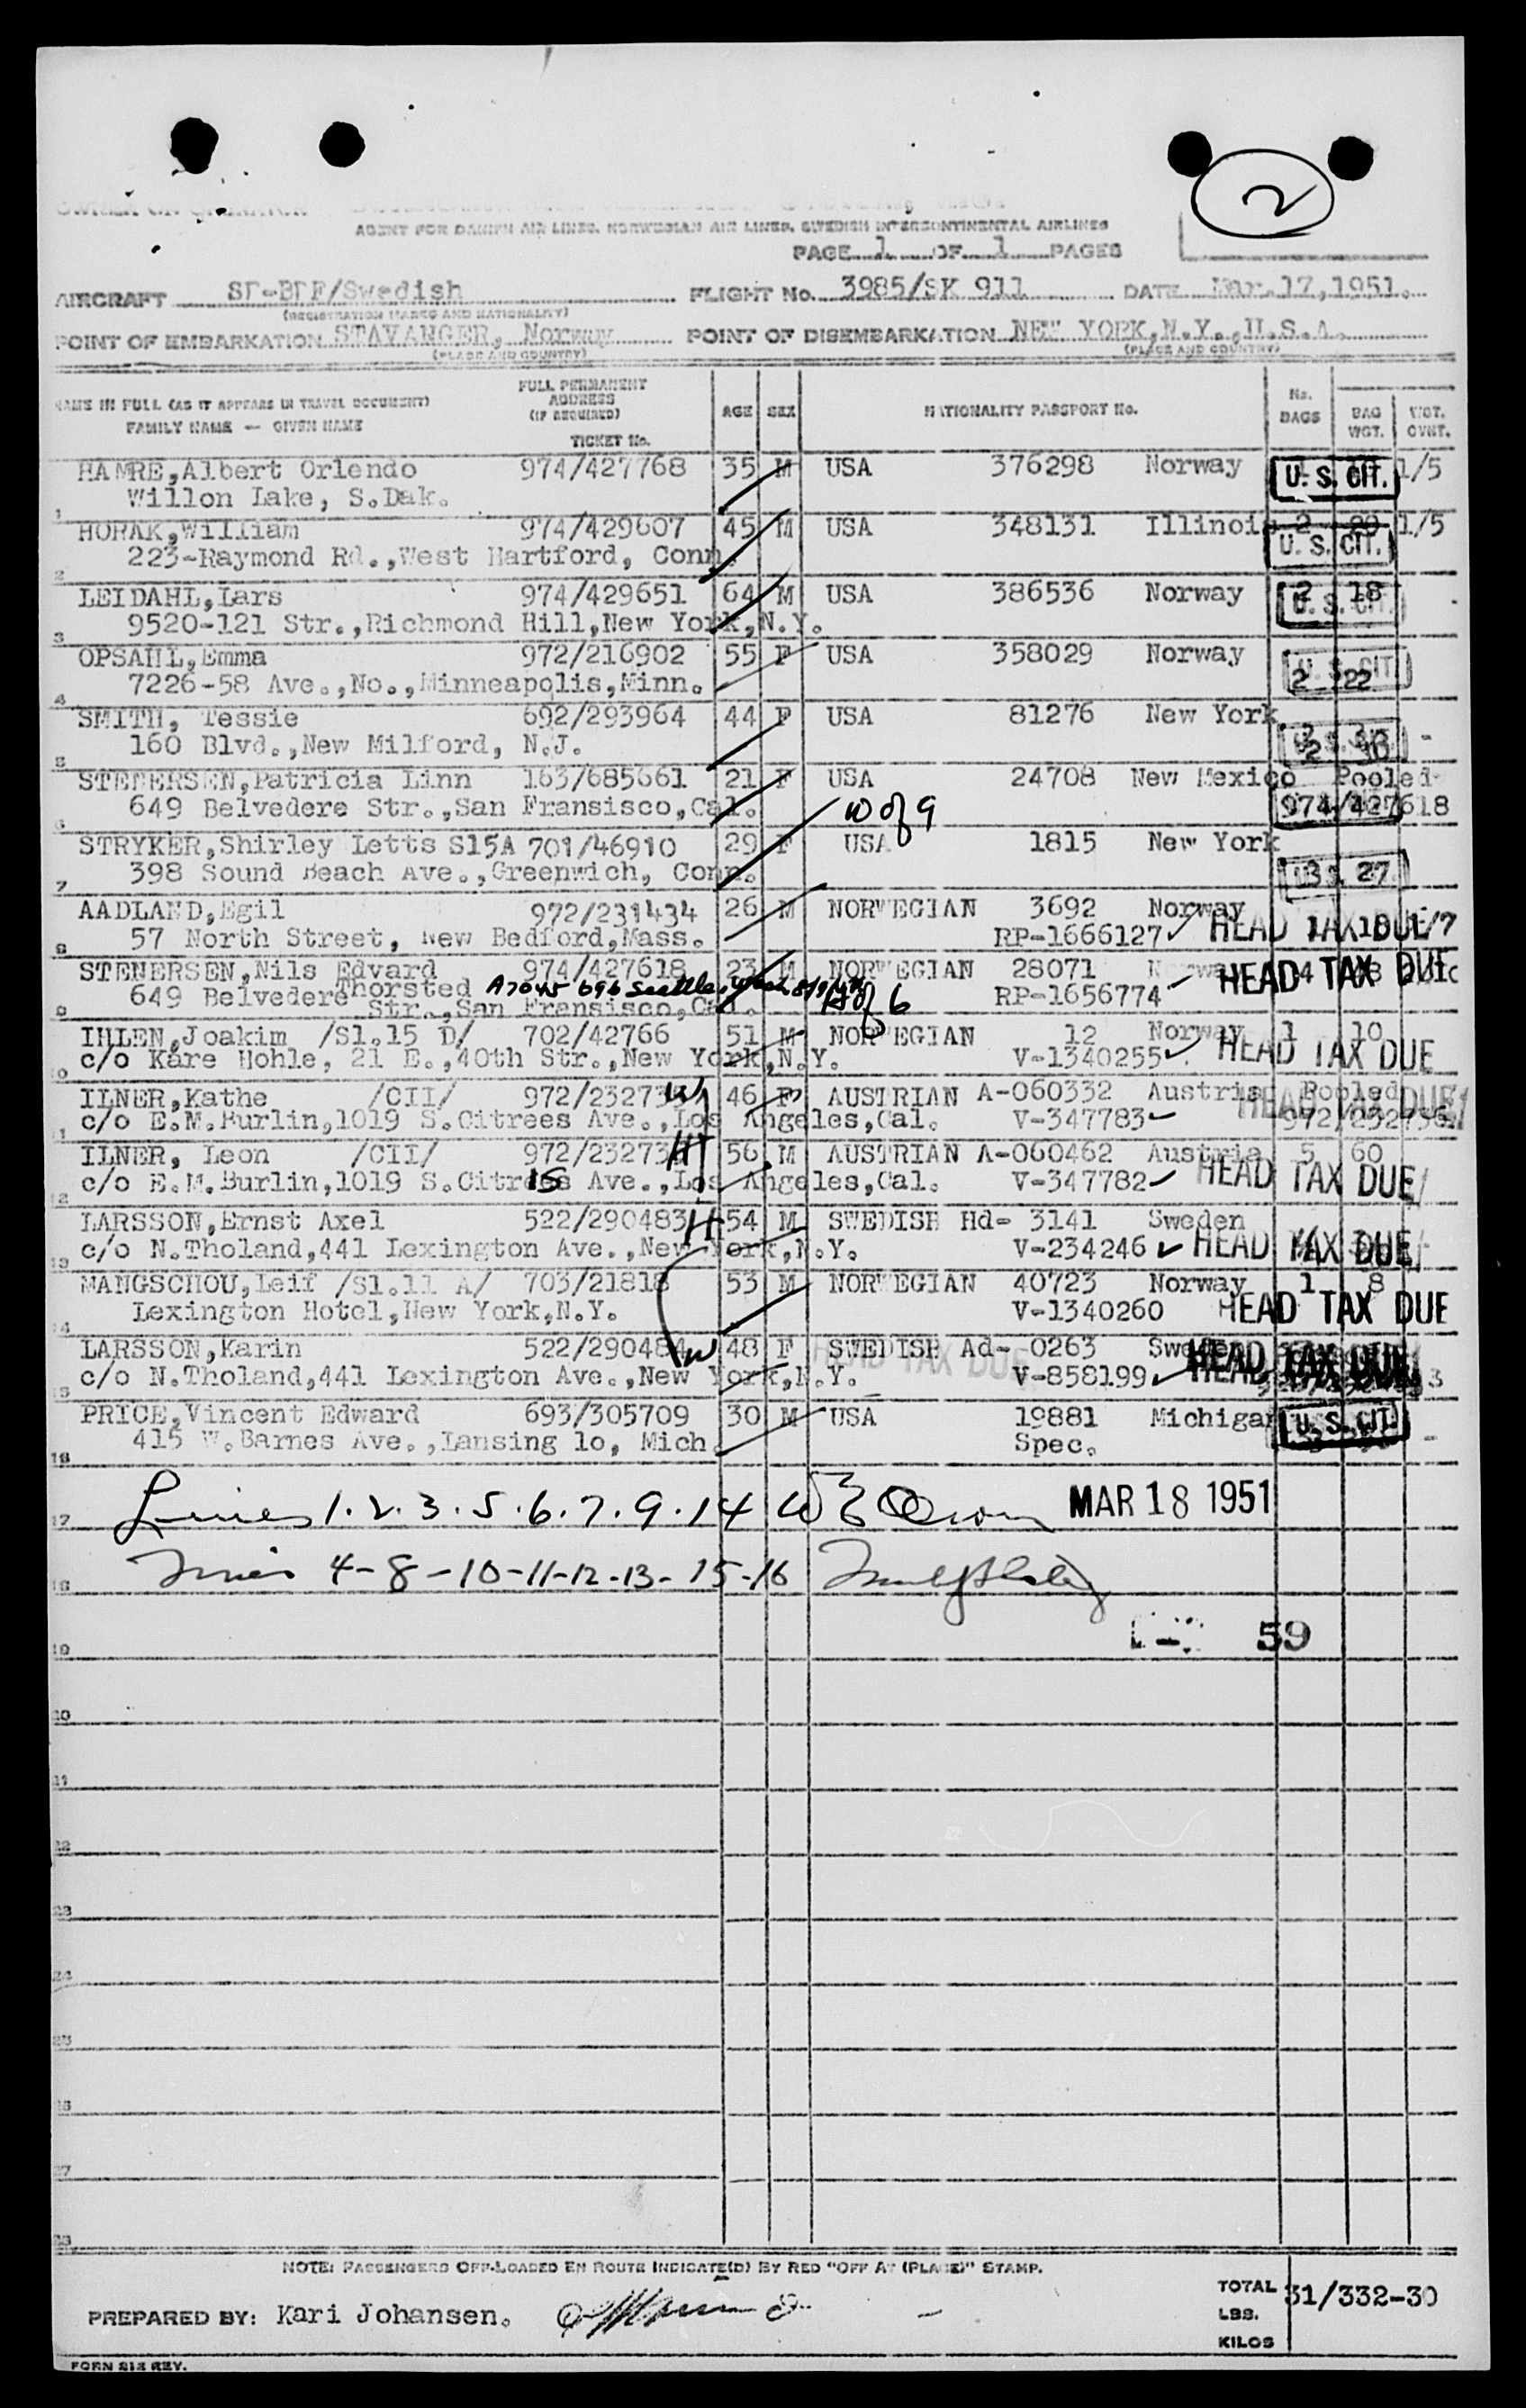 2
AGENT FOR DANISH AIR LINES, NORWEGIAN AIR LINES, SWEDISH INTERCONTINENTAL AIRLINES
PAGE 1 OF 1 PAGES
AIRCRAFT SE-BDF/Swedish FLIGHT No. 3985/SK 911 DATE Mar.17,1951.
(REGISTRATION MARKS AND NATIONALITY)
POINT OF EMBARKATION STAVANGER, Norway POINT OF DISEMBARKATION NEW YORK,N.Y.,U.S.A.
(PLACE AND COUNTRY) (PLACE AND COUNTRY)
NAME IN FULL (AS IT APPEARS IN TRAVEL DOCUMENT) FULL PERMANENT ADDRESS (IF REQUIRED) AGE SEX NATIONALITY PASSPORT No. No. BAGS BAG WGT. WGT. OVHT.
FAMILY NAME — GIVEN NAME TICKET No.
HAMRE,Albert Orlendo 974/427768 35 M USA 376298 Norway U. S. CIT. 1/5
Willon Lake, S.Dak.
1
HORAK,William 974/429607 45 M USA 348131 Illinois 2 20 1/5
223-Raymond Rd.,West Hartford, Conn. U. S. CIT.
2
LEIDAHL,Lars 974/429651 64 M USA 386536 Norway 2 18
9520-121 Str.,Richmond Hill,New York,N.Y. U. S. CIT.
3
OPSAHL,Emma 972/216902 55 F USA 358029 Norway U. S. CIT
7226-58 Ave.,No.,Minneapolis,Minn. 2 22
4
SMITH, Tessie 692/293964 44 F USA 81276 New York
160 Blvd.,New Milford, N.J.
5
STENERSEN,Patricia Linn 163/685661 21 F USA 24708 New Mexico Pooled
649 Belvedere Str.,San Fransisco,Cal. W of 9 974/427618
6
STRYKER,Shirley Letts S15A 701/46910 29 F USA 1815 New York
398 Sound Beach Ave.,Greenwich, Conn. 27
7
AADLAND,Egil 972/231434 26 M NORWEGIAN 3692 Norway
57 North Street, New Bedford,Mass. RP-1666127 HEAD TAX DUE
8
STENERSEN,Nils Edvard 974/427618 23 M NORWEGIAN 28071 Norway HEAD TAX DUE
649 Belvedere Thorsted RP-1656774
Str.,San Fransisco,Cal. H of 6
9
IHLEN,Joakim /Sl.15 D/ 702/42766 51 M NORWEGIAN 12 Norway 1 10
c/o Kåre Hohle, 21 E.,40th Str.,New York,N.Y. V-1340255 HEAD TAX DUE
10
ILNER,Kathe /CII/ 972/23273 W 46 F AUSTRIAN A-060332 Austria Pooled
c/o E.M.Burlin,1019 S.Citrees Ave.,Los Angeles,Cal. V-347783 HEAD TAX DUE
11
ILNER, Leon /CII/ 972/23273 H 56 M AUSTRIAN A-060462 Austria 5 60
c/o E.M.Burlin,1019 S.Citrees Ave.,Los Angeles,Cal. V-347782 HEAD TAX DUE
12
LARSSON,Ernst Axel 522/290483 H 54 M SWEDISH Hd- 3141 Sweden
c/o N.Tholand,441 Lexington Ave.,New York,N.Y. V-234246 HEAD TAX DUE
13
MANGSCHOU,Leif /Sl.11 A/ 703/21818 53 M NORWEGIAN 40723 Norway 1 8
Lexington Hotel,New York,N.Y. V-1340260 HEAD TAX DUE
14
LARSSON,Karin 522/290484 W 48 F SWEDISH Ad- 0263 Sweden HEAD TAX DUE
c/o N.Tholand,441 Lexington Ave.,New York,N.Y. V-858199
15
PRICE,Vincent Edward 693/305709 30 M USA 19881 Michigan U. S. CIT.
415 W.Barnes Ave.,Lansing 10, Mich. Spec.
16
Lines 1.2.3.5.6.7.9.14 MAR 18 1951
17
Lines 4-8-10-11-12-13-15-16
18
59
19
20
21
22
23
24
25
26
27
28
NOTE: PASSENGERS OFF-LOADED EN ROUTE INDICATE(D) BY RED "OFF AT (PLACE)" STAMP.
PREPARED BY: Kari Johansen. TOTAL 31/332-30
LBS.
KILOS
FORM 212 REV.